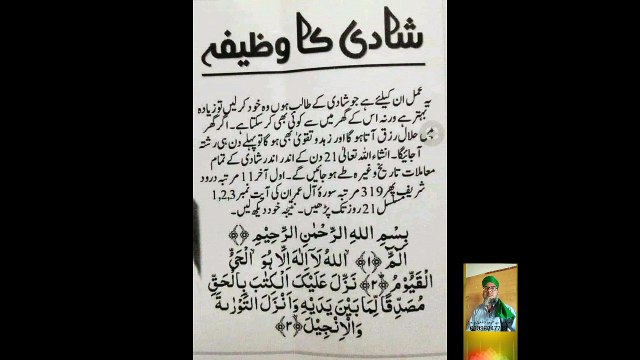 شادی کا وظیفہ
یہ عمل ان کیلئے ہے جو شادی کے طالب ہوں وہ خود کرلیں تو زیادہ
بہتر ہے ورنہ اس کے گھر میں سے کوئی بھی کر سکتا ہے۔ اگر گھر
میں حلال رزق آتا ہوگا اور زہد و تقویٰ بھی ہوگا تو پہلے دن ہی رشتہ
آجائیگا۔ انشاء اللہ تعالیٰ 21 دن کے اندر اندر شادی کے تمام
معاملات تاریخ وغیرہ طے ہوجائیں گے۔ اول آخر 11 مرتبہ درود
شریف پھر 319 مرتبہ سورۃ آل عمران کی آیت نمبر 1,2,3
مسلسل 21 روز تک پڑھیں۔ نتیجہ خود دیکھ لیں۔
بِسْمِ اللهِ الرَّحْمٰنِ الرَّحِيْمِ ﴿﴾
الٓمّٓ ﴿۱﴾ اللهُ لَاۤ اِلٰهَ اِلَّا هُوَ الْحَيُّ
الْقَيُّوْمُ ﴿۲﴾ نَزَّلَ عَلَيْكَ الْكِتٰبَ بِالْحَقِّ
مُصَدِّقًا لِّمَا بَيْنَ يَدَيْهِ وَاَنْزَلَ التَّوْرٰىةَ
وَالْاِنْجِيْلَ ﴿۳﴾